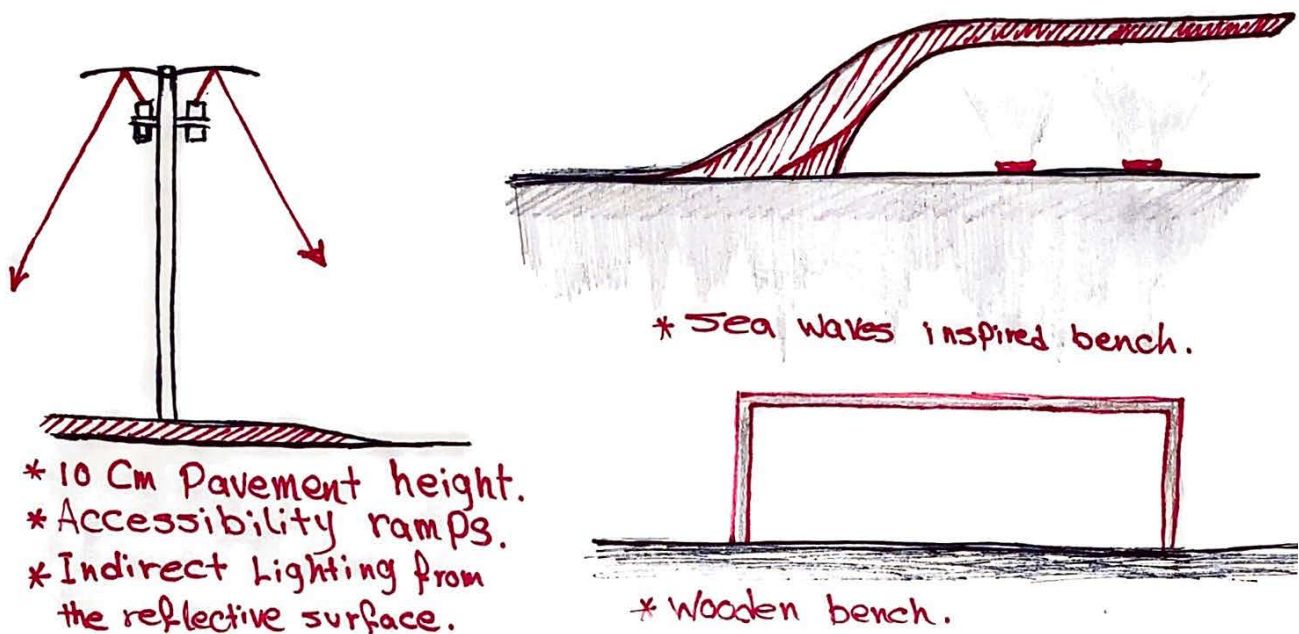 * 10 Cm Pavement height.
* Accessibility ramps.
* Indirect Lighting from
the reflective surface.
* Sea waves inspired bench.
* Wooden bench.